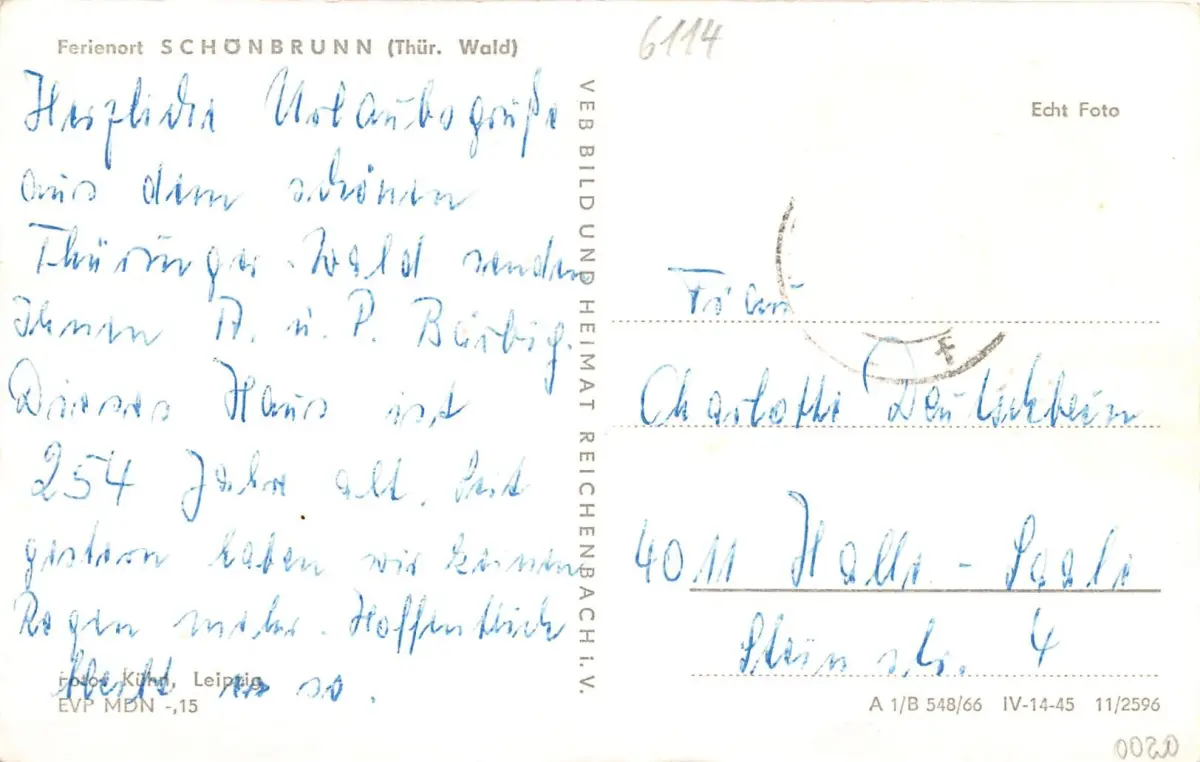 Ferienort SCHÖNBRUNN (Thür. Wald)
Herzliche Urlaubsgrüße
aus dem schönen
Thüringer Wald senden
Ihnen A. u. P. Bärbig.
Dieses Haus ist
254 Jahre alt. Seit
gestern haben wir keinen
Regen mehr. Hoffentlich
bleibt es so.
Fotos Kühn, Leipzig
EVP MDN -,15
VEB BILD UND HEIMAT REICHENBACH i. V.
6114
Echt Foto
Frau
Charlotte
4011 Halle - Saale
Steinstr. 4
A 1/B 548/66 IV-14-45 11/2596
0020